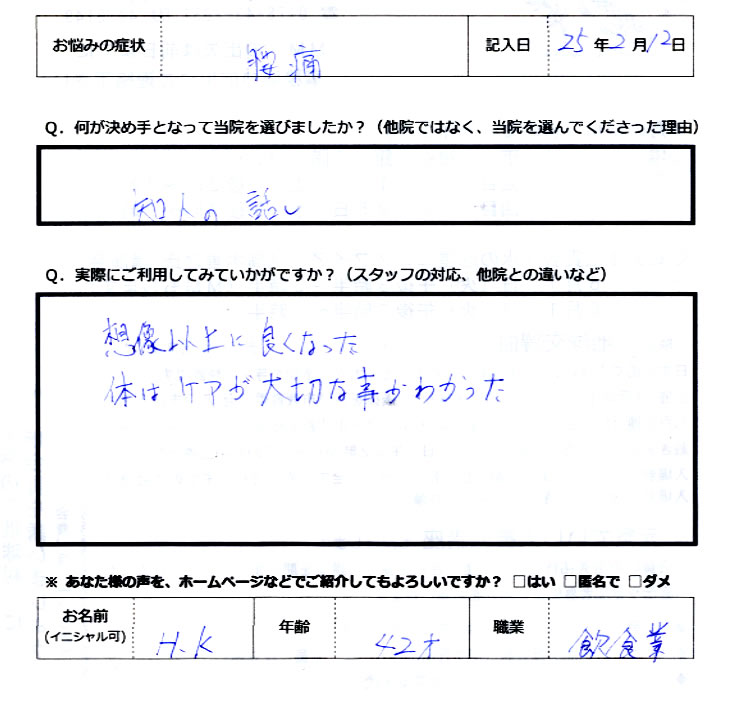 お悩みの症状 腰痛 記入日 25年2月12日
Q．何が決め手となって当院を選びましたか？（他院ではなく、当院を選んでくださった理由）
知人の話し
Q．実際にご利用してみていかがですか？（スタッフの対応、他院との違いなど）
想像以上に良くなった
体はケアが大切な事がわかった
※ あなた様の声を、ホームページなどでご紹介してもよろしいですか？ □はい □匿名で □ダメ
お名前 (イニシャル可) H.K 年齢 42才 職業 飲食業